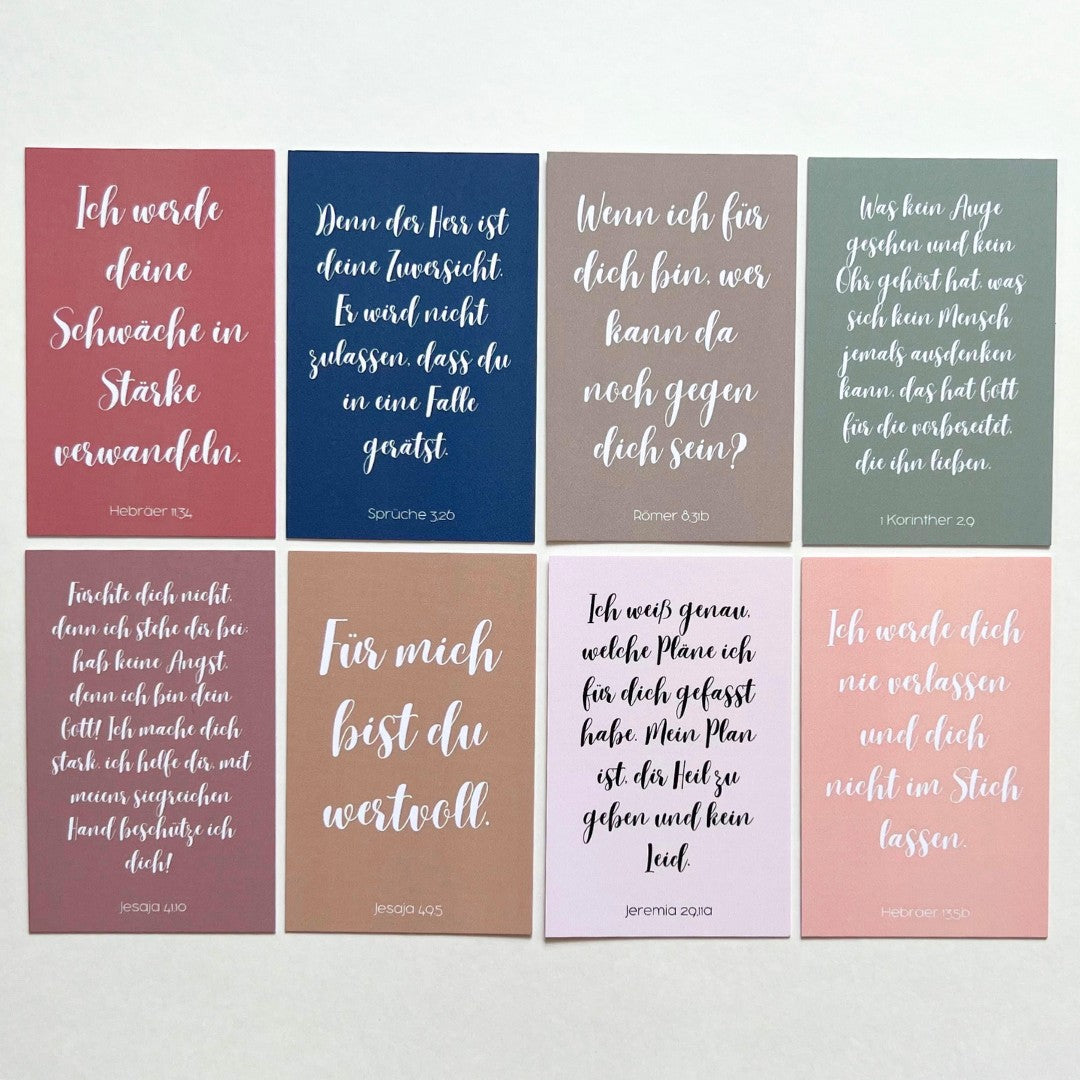 Ich werde
deine
Schwäche in
Stärke
verwandeln.
Hebräer 11,34
Denn der Herr ist
deine Zuversicht.
Er wird nicht
zulassen, dass du
in eine Falle
gerätst.
Sprüche 3,26
Wenn ich für
dich bin, wer
kann da
noch gegen
dich sein?
Römer 8,31b
Was kein Auge
gesehen und kein
Ohr gehört hat, was
sich kein Mensch
jemals ausdenken
kann, das hat Gott
für die vorbereitet,
die ihn lieben.
1 Korinther 2,9
Fürchte dich nicht,
denn ich stehe dir bei;
hab keine Angst,
denn ich bin dein
Gott! Ich mache dich
stark, ich helfe dir, mit
meienr siegreichen
Hand beschütze ich
dich!
Jesaja 41,10
Für mich
bist du
wertvoll.
Jesaja 49,5
Ich weiß genau,
welche Pläne ich
für dich gefasst
habe. Mein Plan
ist, dir Heil zu
geben und kein
Leid.
Jeremia 29,11a
Ich werde dich
nie verlassen
und dich
nicht im Stich
lassen.
Hebräer 13,5b